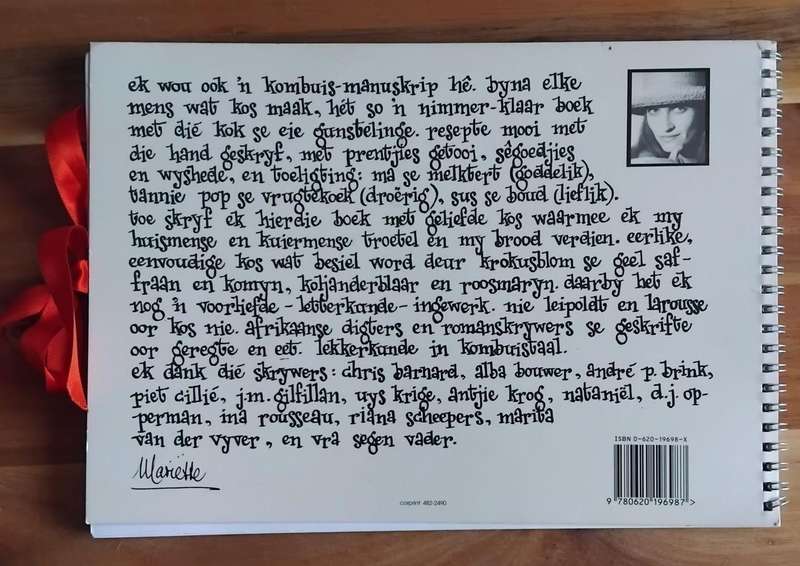 ek wou ook 'n kombuis-manuskrip hê. byna elke
mens wat kos maak, hét so 'n nimmer-klaar boek
met dié kok se eie gunstelinge. resepte mooi met
die hand geskryf, met prentjies getooi, sêgoedjies
en wyshede, en toeligting: ma se melktert (goddelik),
tannie pop se vrugtekoek (droërig), sus se boud (lieflik).
toe skryf ek hierdie boek met geliefde kos waarmee ek my
huismense en kuiermense troetel en my brood verdien. eerlike,
eenvoudige kos wat besiel word deur krokusblom se geel saf-
fraan en komyn, koljanderblaar en roosmaryn. daarby het ek
nog 'n voorliefde - letterkunde - ingewerk. nie leipoldt en larousse
oor kos nie. afrikaanse digters en romanskrywers se geskrifte
oor geregte en eet. lekkerkunde in kombuistaal.
ek dank dié skrywers: chris barnard, alba bouwer, andré p. brink,
piet cillié, j.m. gilfillan, uys krige, antjie krog, nataniël, d.j. op-
perman, ina rousseau, riana scheepers, marita
van der vyver, en vra segen vader.
Mariëtte
ISBN 0-620-19698-X
9 780620 196987 >
corprint 482-2490